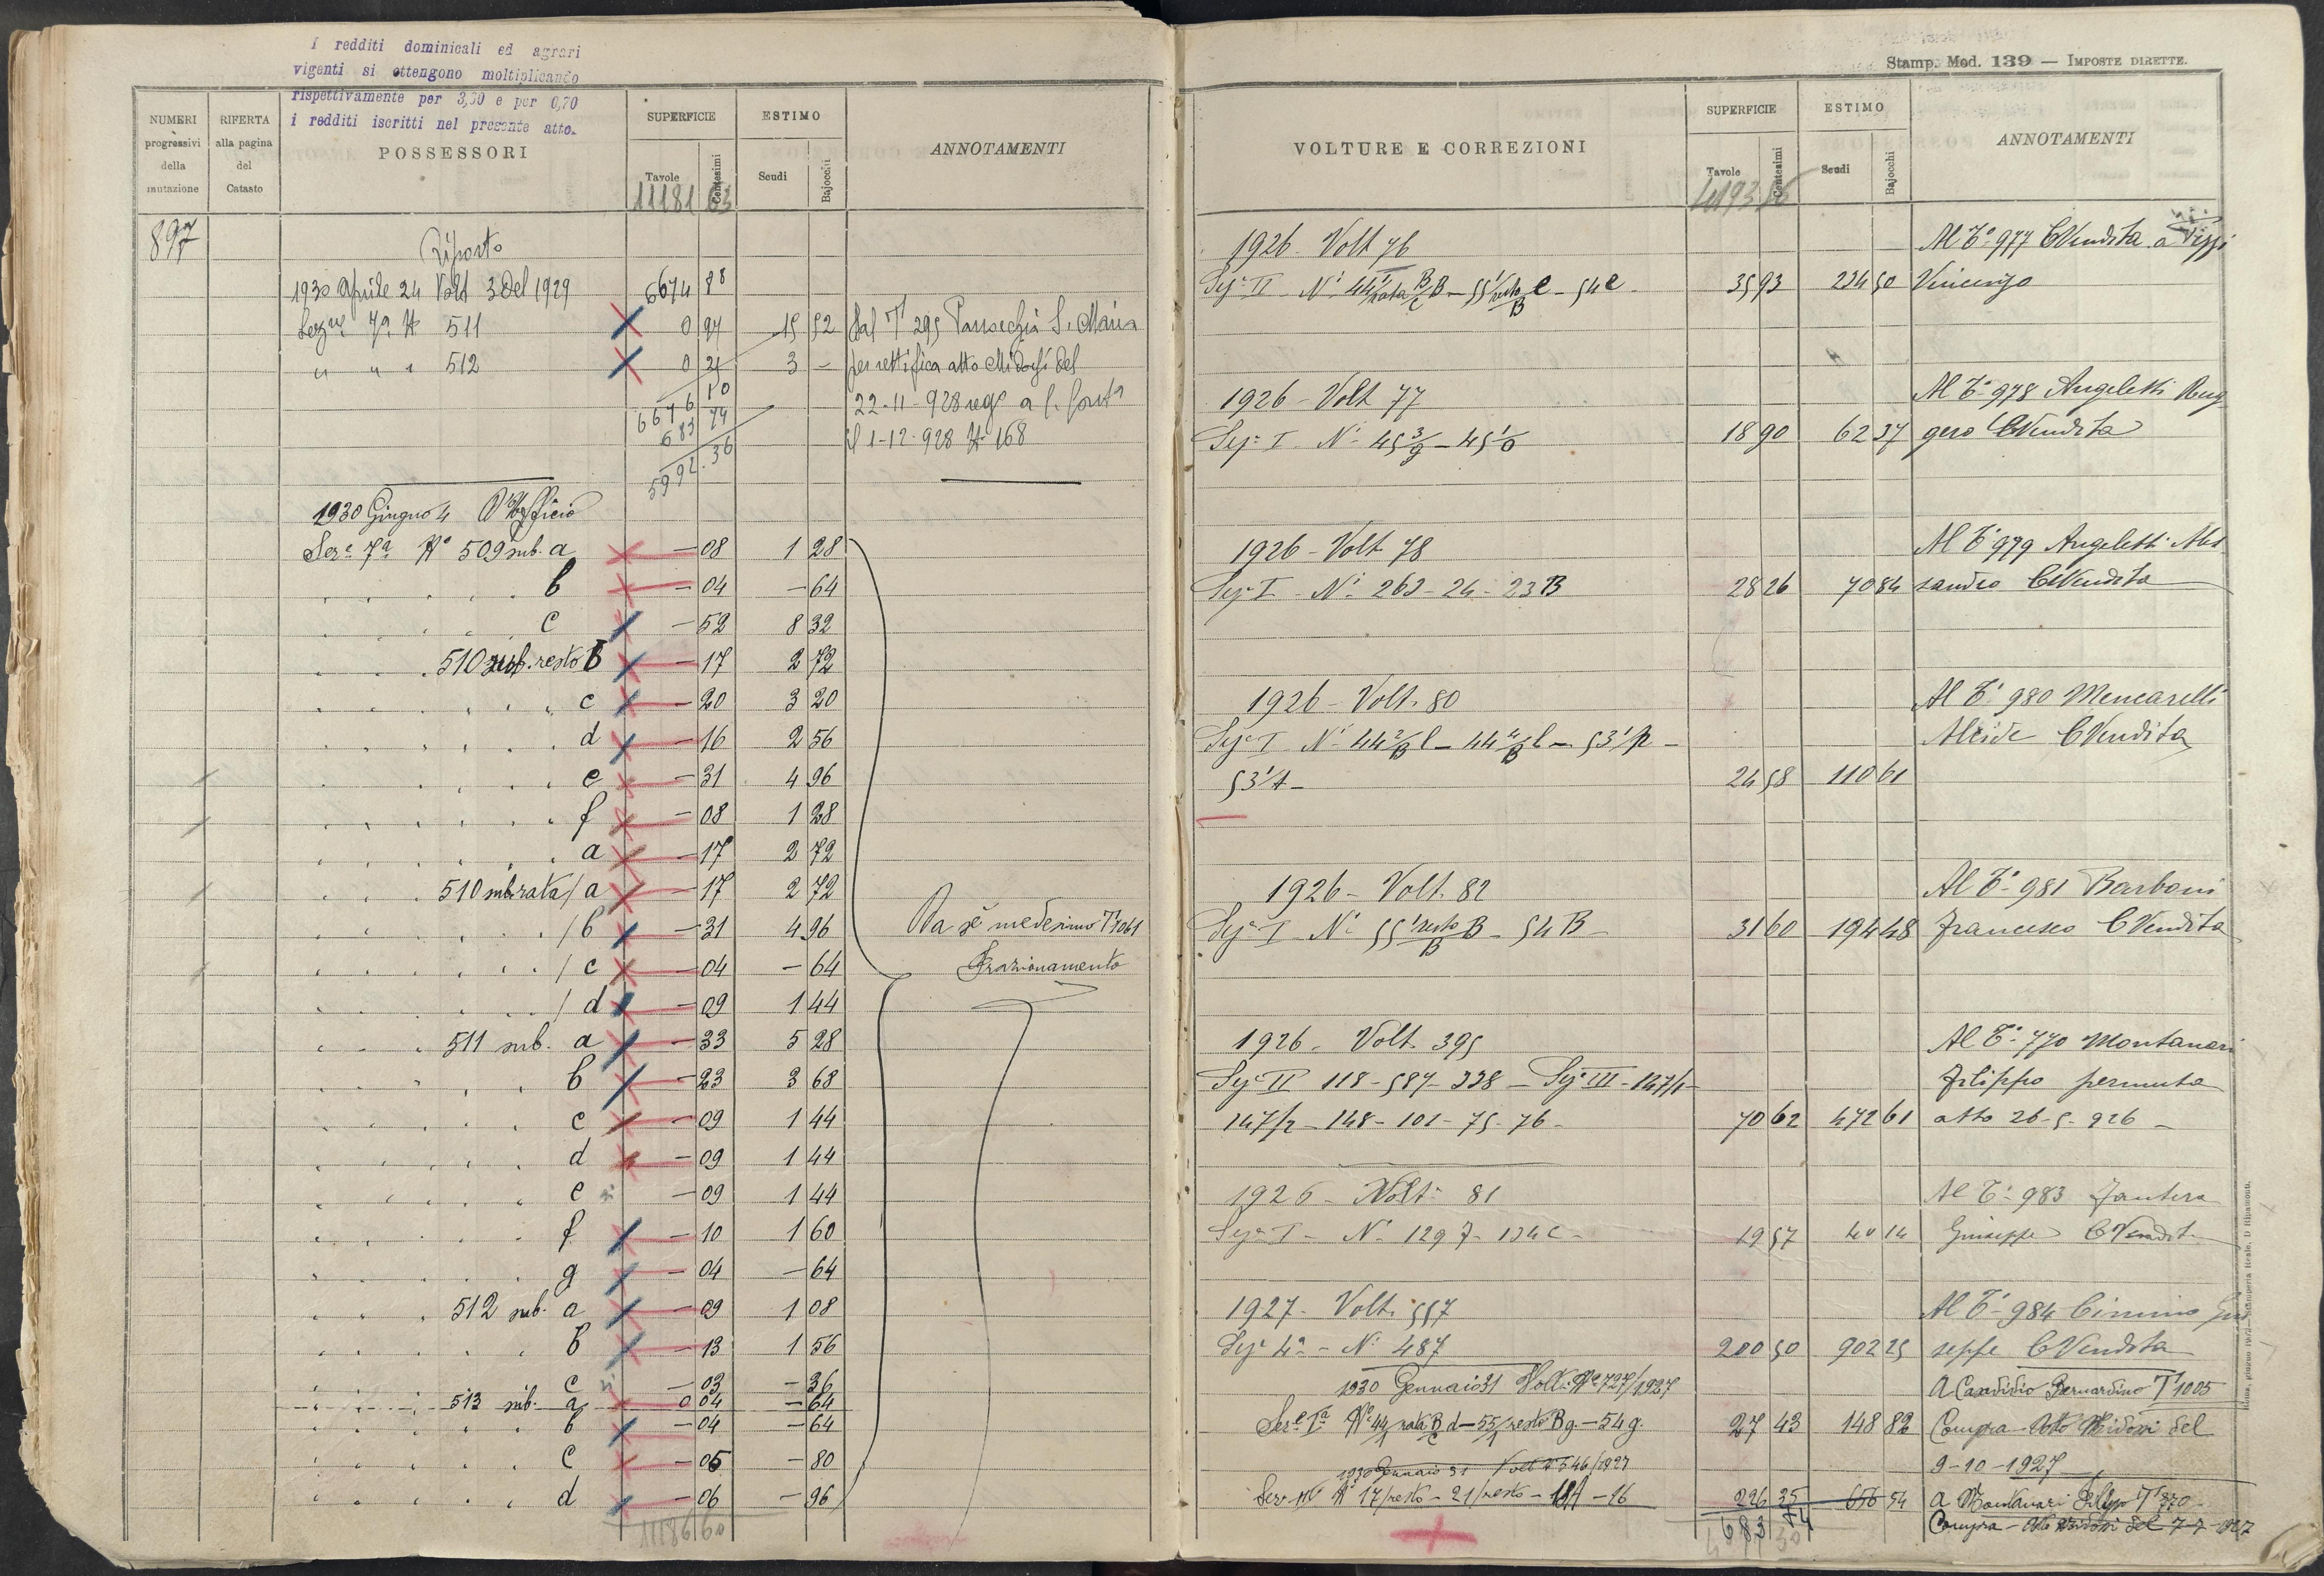 I redditi dominicali ed agrari
vigenti si ottengono moltiplicando
rispettivamente per 3,50 e per 0,70
i redditi iscritti nel presente atto.
NUMERI progressivi della mutazione
RIFERTA alla pagina del Catasto
POSSESSORI
SUPERFICIE Tavole Centesimi
ESTIMO Scudi Bajocchi
ANNOTAMENTI
11181 63
897
Riporto
1930 Aprile 24 Volt 3 del 1929 6674 88
Sez.ne 7a N 511 0 97 15 52 Dal T 295 Parrocchia S. Maria
" " " 512 0 25 3 – per rettifica atto Midossi del
6676 10 22-11-928 reg.
683 74 il 1-12-928 N. 168
5992.36
1930 Giugno 4 D'Ufficio
Sez.e 7a No 509 sub. a – 08 1 28
b – 04 – 64
c – 52 8 32
510 sub. resto b – 17 2 72
c – 20 3 20
d – 16 2 56
e – 31 4 96
f – 08 1 28
a – 17 2 72
510 sub rata / a – 17 2 72
/ b – 31 4 96 Da sè medesimo T 1061
/ c – 04 – 64 Frazionamento
/ d – 09 1 44
511 sub. a – 33 5 28
b – 23 3 68
c – 09 1 44
d – 09 1 44
e – 09 1 44
f – 10 1 60
g – 04 – 64
512 sub. a – 09 1 08
b – 13 1 56
c – 03 – 36
513 sub. a 0 04 – 64
b – 04 – 64
c – 05 – 80
d – 06 – 96
11186 60
Stamp. Mod. 139 — IMPOSTE DIRETTE.
VOLTURE E CORREZIONI
SUPERFICIE Tavole Centesimi
ESTIMO Scudi Bajocchi
ANNOTAMENTI
1926 – Volt 76 Al T° 977 C Vendita a
Sez. II – N. 35 93 234 50 Vincenzo
1926 – Volt 77 Al T° 978 Angeletti Rug
Sez. I – N. 45 3/9 – 45 1/0 18 90 62 37 gero C Vendita
1926 – Volt 78 Al T° 979 Angeletti Ales
Sez. I – N. 263 – 24 – 23 B 28 26 70 84 sandro C Vendita
1926 – Volt. 80 Al T° 980 Mencarelli
Sez. I N. Alcide C Vendita
24 58 110 61
1926 – Volt. 82 Al T° 981 Barboni
Sez. I N. 55 1/resto B – 54 B 31 60 194 48 Francesco C Vendita
1926 – Volt. 395 Al T° 770 Montanari
Sez. II 118 – 587 – 338 – Sez. III – 147/1 Filippo permuta
147/2 – 148 – 101 – 75 – 76 – 70 62 472 61 atto 26-5-926 –
1926 – Volt. 81 Al T° 983
Sez. I – N. 129 7 – 134 C – 19 57 40 14 Giuseppe C Vendit.
1927 – Volt. 557 Al T° 984 Cimino Giu
Sez. 4a – N. 487 200 50 902 25 seppe C Vendita
1930 Gennaio 31 Volt. No 727/1927 A Candidio Bernardino T 1005
Sez.e Ia No 44/1 rata B/c d – 55/1 resto B g. – 54 g. 27 43 148 82 Compra – Atto Midossi del
9-10-1927
1930 Gennaio 31 Volt N 546/1927
Sez. N° 17/resto – 21/resto – – 16 226 35 656 54 A Montanari Filippo T 770
683 74 Compra – Atto Midossi del 7-7-1927